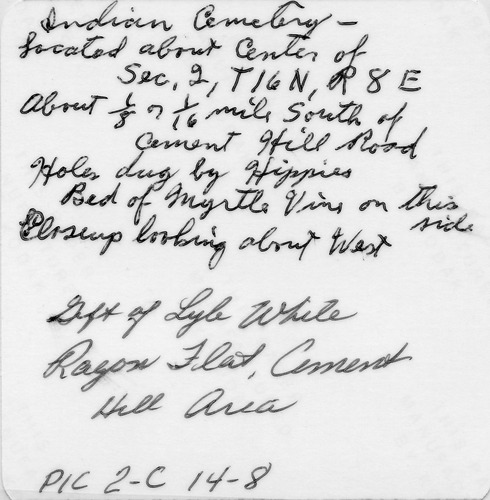 Indian Cemetery -
Located about Center of
Sec, 2, T16N, R 8 E
About 1/8 or 1/16 mile South of
Cement Hill Road
Holes dug by Hippies
Bed of Myrtle Vine on this
side
Closeup looking about West
Gift of Lyle White
Ragon Flat, Cement
Hill Area
PIC 2-C 14-8